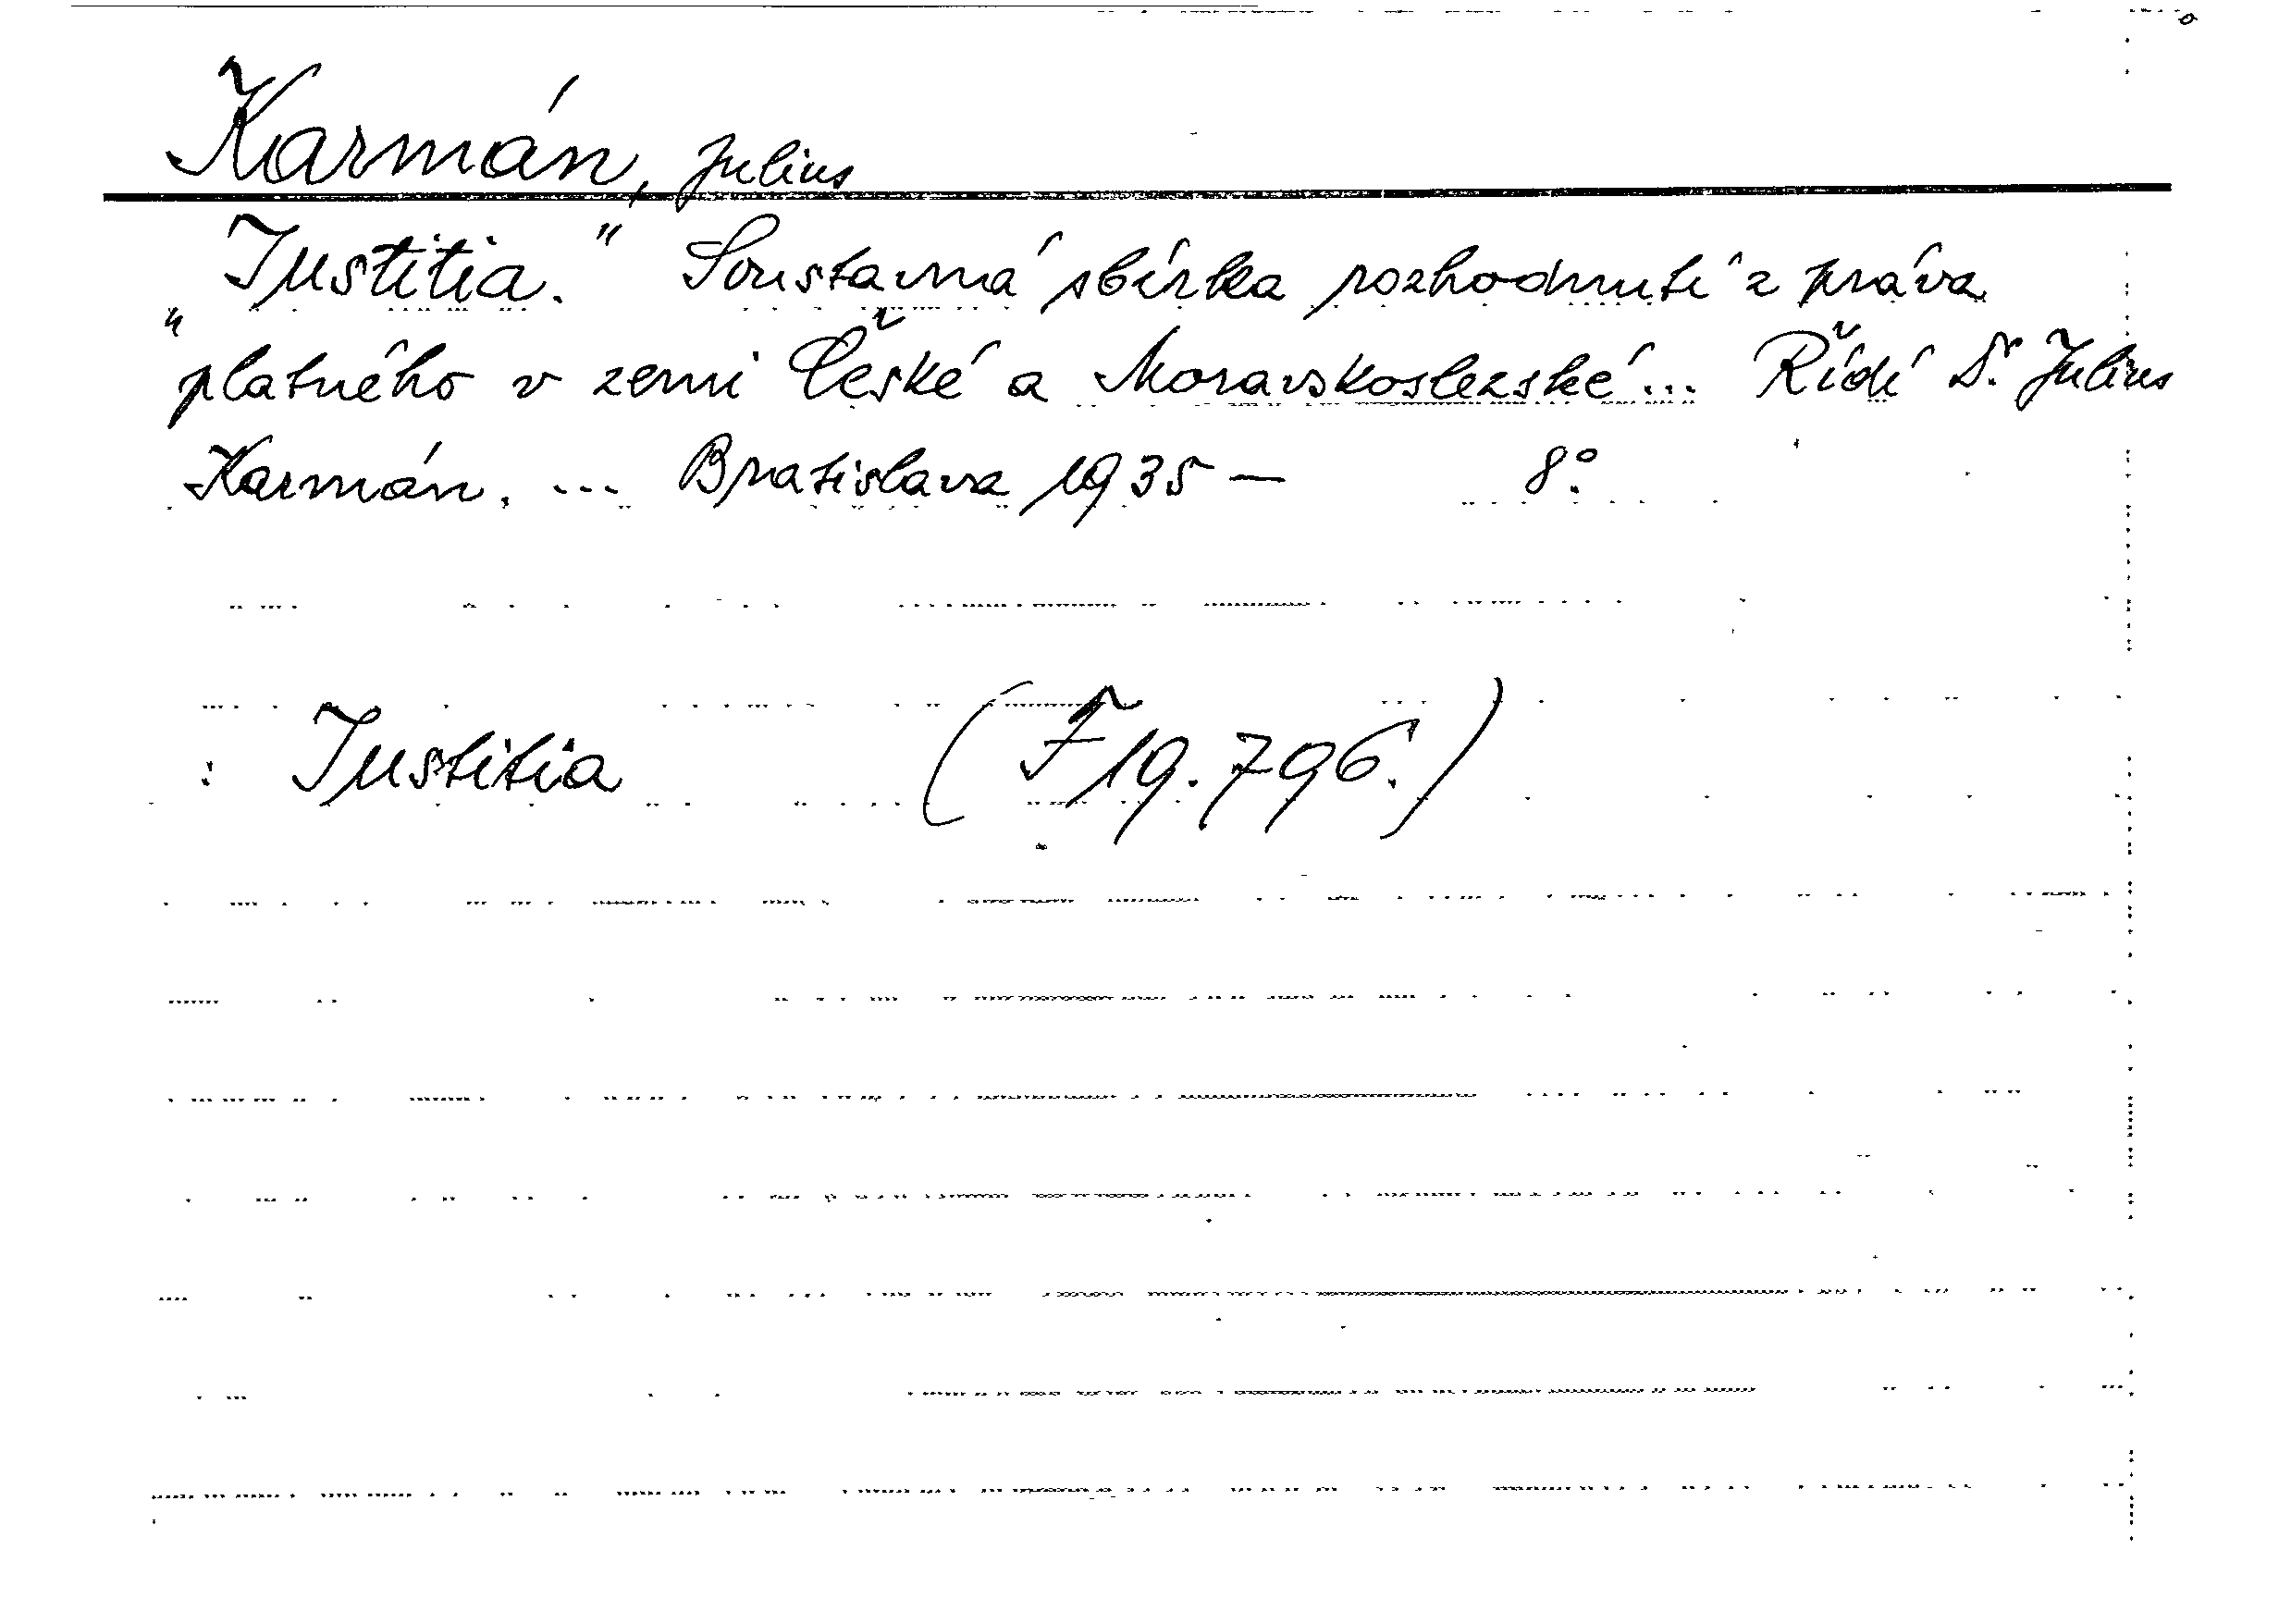 Karmán, Julius
„Justitia." Soustavná sbírka rozhodnutí z práva
platného v zemi České a Moravskoslezské... Řídí Dr. Julius
Karmán. ... Bratislava 1935 — 8°.
: Justitia (F 19.796.)